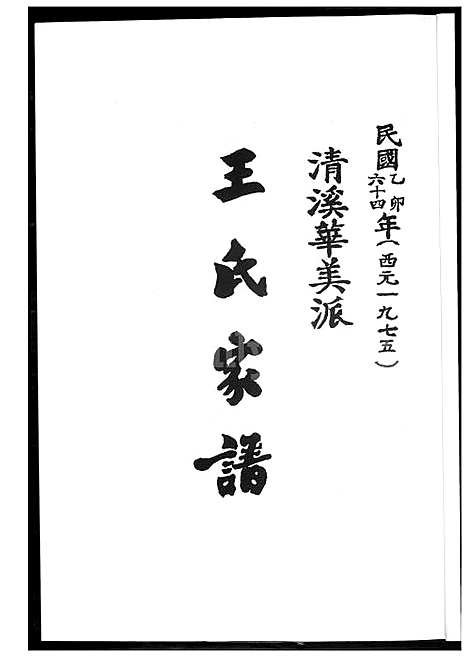 民國六十四乙卯年(西元一九七五)
清溪華美派
王氏家譜